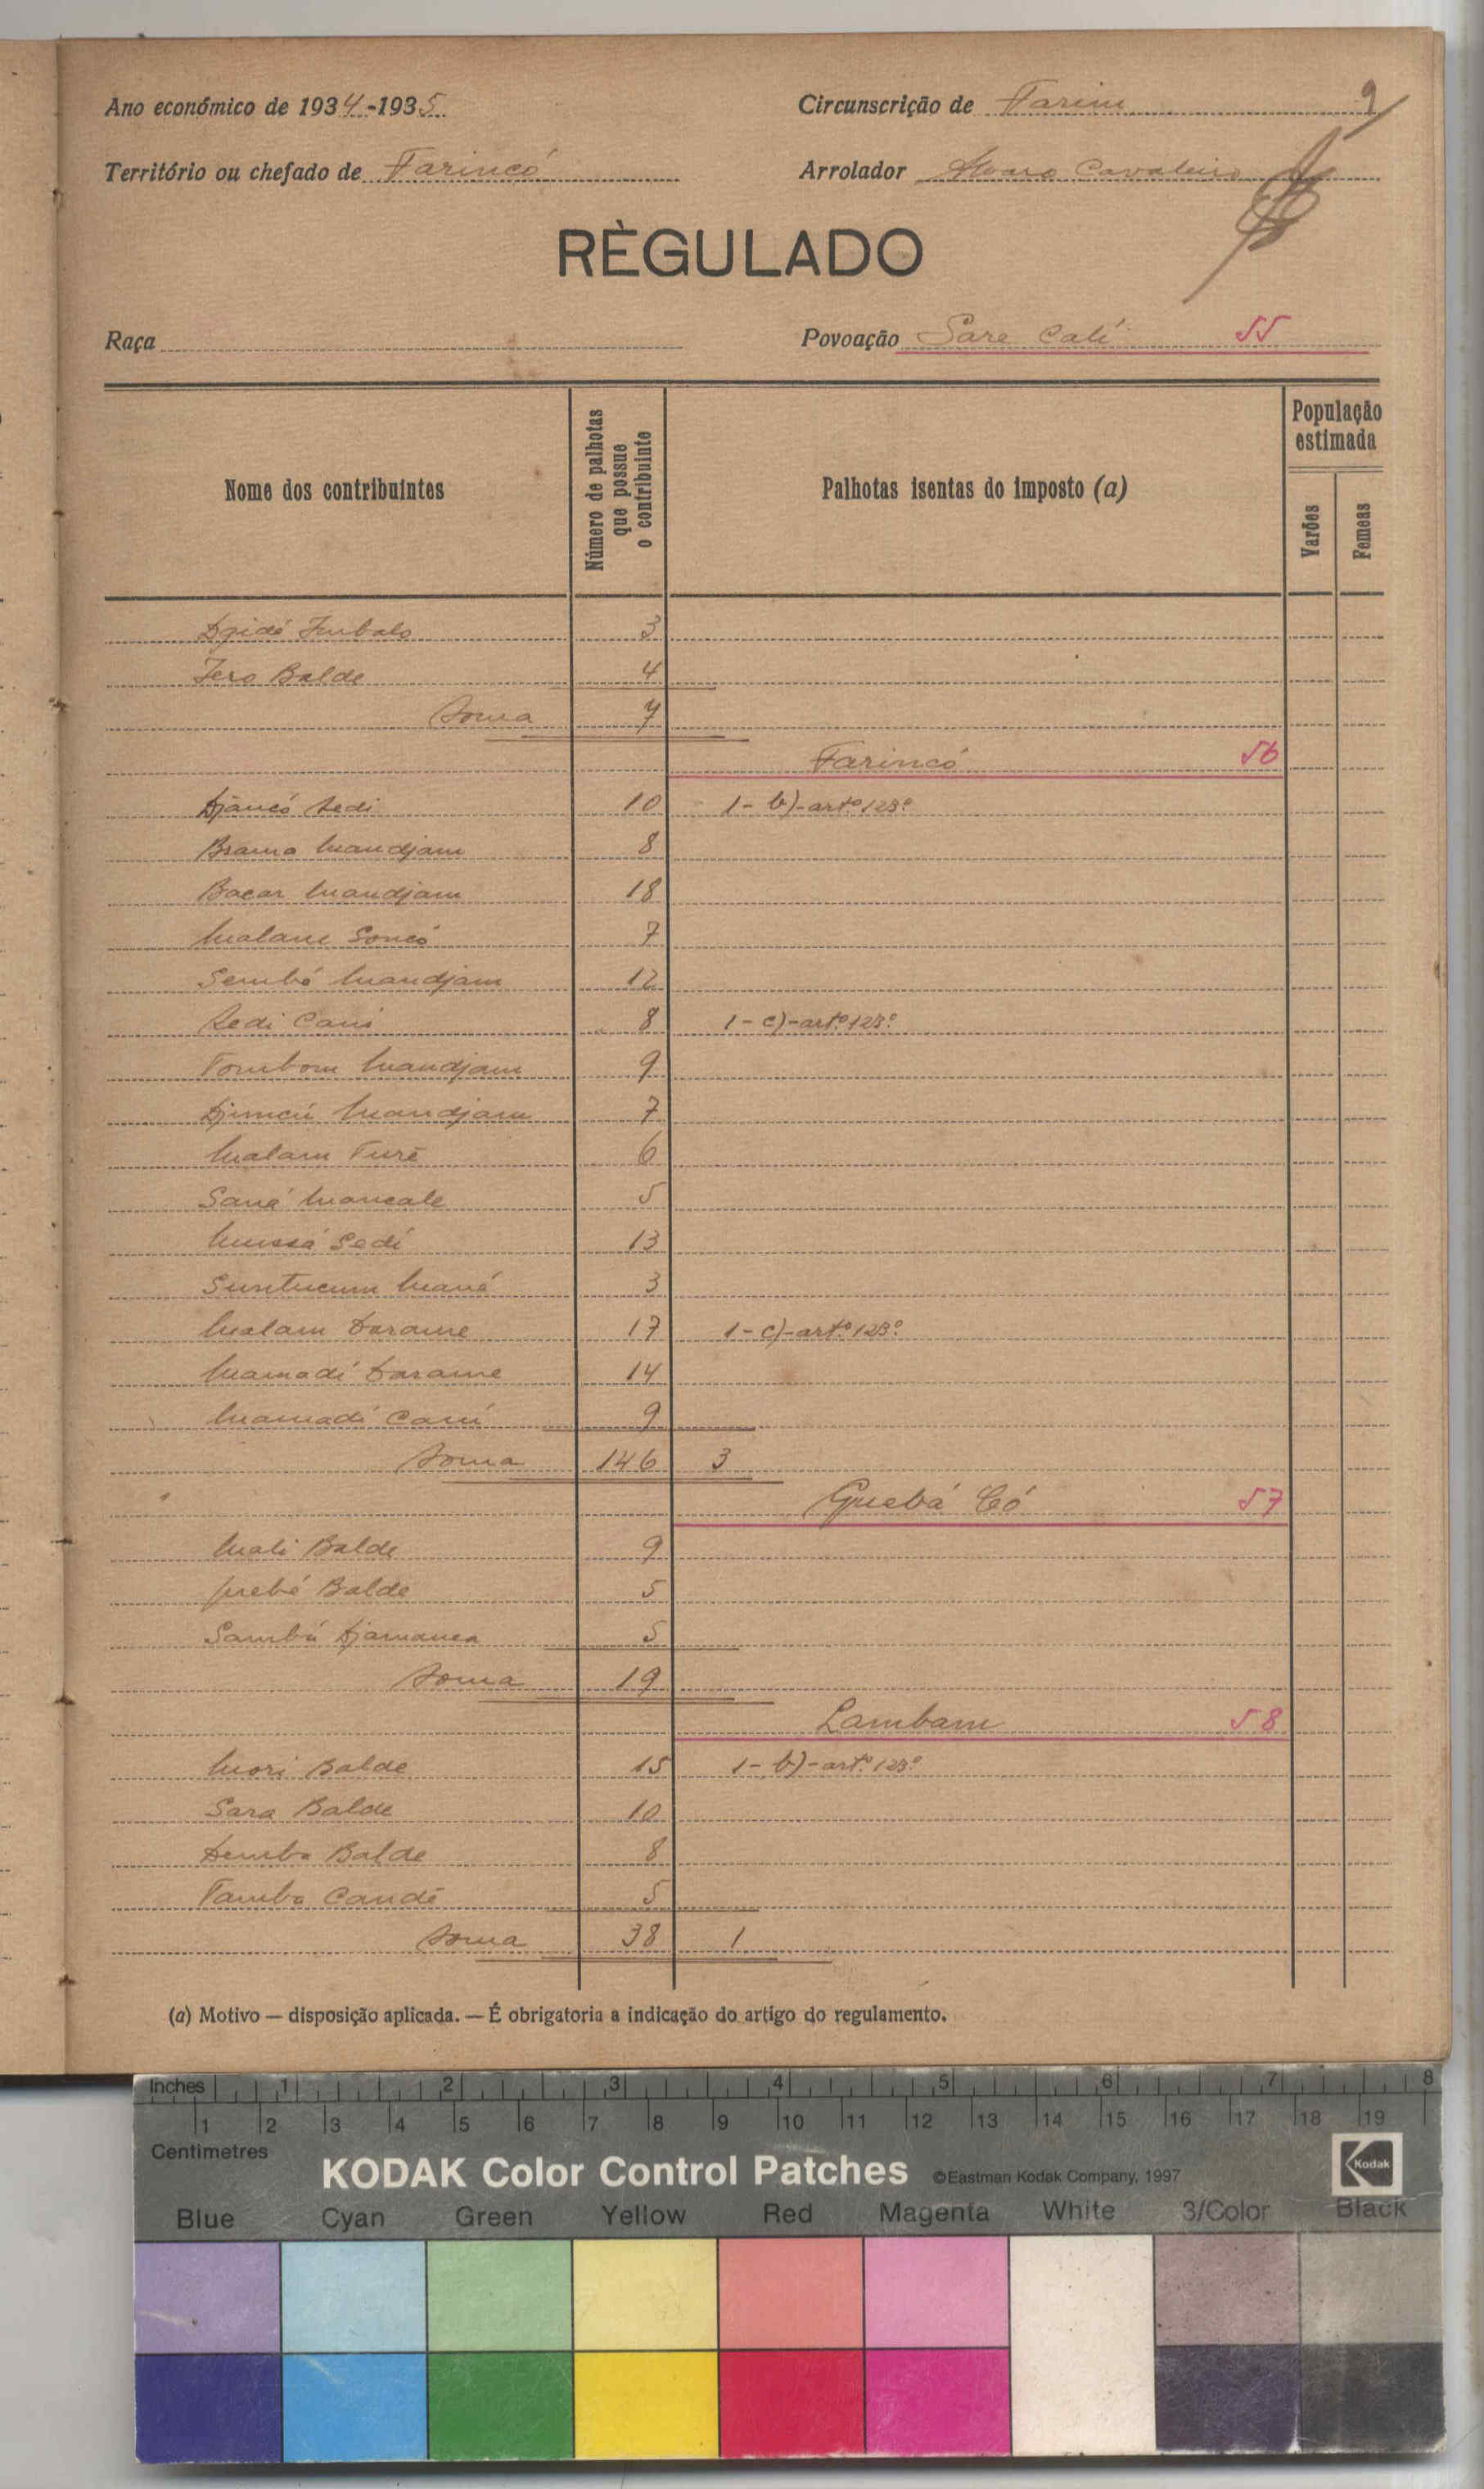 Ano económico de 1934-1935
Circunscrição de Farim 9
Território ou chefado de Farincó
Arrolador Alvaro Cavaleiro
RÈGULADO
Raça
Povoação Sare Cali 55
Nome dos contribuintes
Número de palhotas que possue o contribuinte
Palhotas isentas do imposto (a)
População estimada
Varões
Femeas
Embalo 3
Jero Balde 4
Soma 7
Farincó 56
Sedi 10 1-b)-artº 123º
Brama Mandjam 8
Bacar Mandjam 18
Malam Soncó 7
Sembó Mandjam 12
Sedi Cani 8 1-c)-artº 123º
Tombom Mandjam 9
Djuncú Mandjam 7
Malam Turé 6
Saná Mancale 5
Mussá Sedi 13
Suntucum Mané 3
Malam Darame 17 1-c)-artº 123º
Mamadi Darame 14
Mamadi Cani 9
Soma 146 3
Guebá Có 57
Mali Balde 9
Balde 5
Sambú Djamanca 5
Soma 19
Lambam 58
Mori Balde 15 1-b)-artº 123º
Sara Balde 10
Demba Balde 8
Tamba Candé 5
Soma 38 1
(a) Motivo — disposição aplicada. — É obrigatoria a indicação do artigo do regulamento.
Inches 1 2 3 4 5 6 7 8
1 2 3 4 5 6 7 8 9 10 11 12 13 14 15 16 17 18 19
Centimetres
KODAK Color Control Patches ©Eastman Kodak Company, 1997 Kodak
Blue Cyan Green Yellow Red Magenta White 3/Color Black